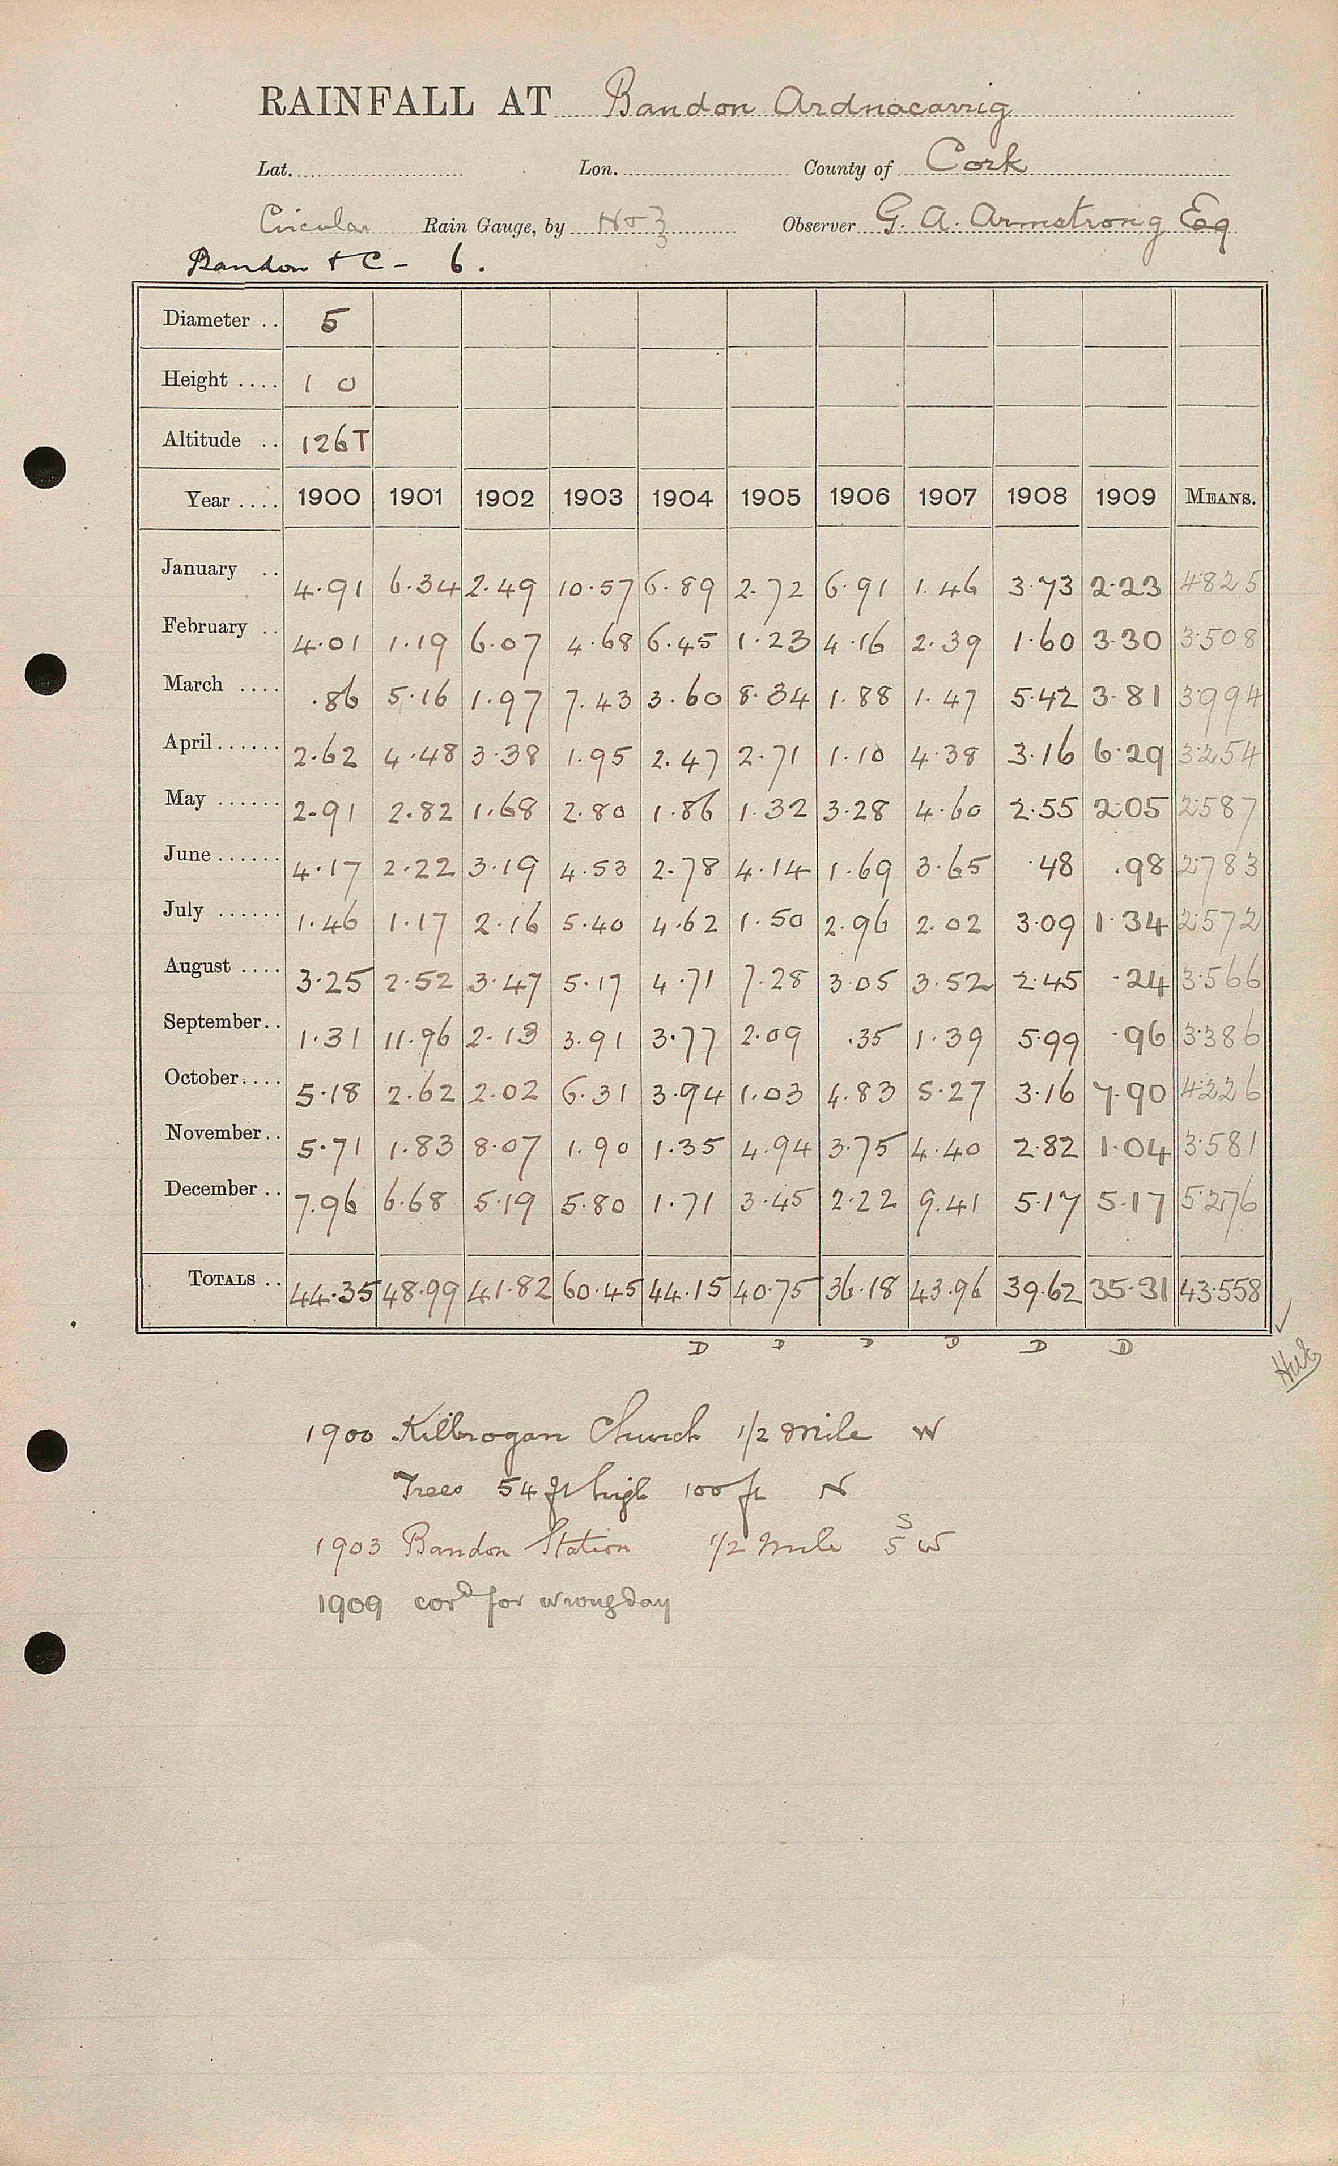 RAINFALL AT Bandon Ardnacarrig
Lat. Lon. County of Cork
Circular Rain Gauge, by No 3 Observer G. A. Armstrong Esq
Bandon + C - 6.
Diameter .. 5
Height .... 1 0
Altitude .. 126T
Year .... 1900 1901 1902 1903 1904 1905 1906 1907 1908 1909 MEANS.
January .. 4.91 6.34 2.49 10.57 6.89 2.72 6.91 1.46 3.73 2.23 4.825
February .. 4.01 1.19 6.07 4.68 6.45 1.23 4.16 2.39 1.60 3.30 3.508
March .... .86 5.16 1.97 7.43 3.60 8.34 1.88 1.47 5.42 3.81 3.994
April ...... 2.62 4.48 3.38 1.95 2.47 2.71 1.10 4.38 3.16 6.29 3.254
May ...... 2.91 2.82 1.68 2.80 1.86 1.32 3.28 4.60 2.55 2.05 2.587
June ...... 4.17 2.22 3.19 4.53 2.78 4.14 1.69 3.65 .48 .98 2.783
July ...... 1.46 1.17 2.16 5.40 4.62 1.50 2.96 2.02 3.09 1.34 2.572
August .... 3.25 2.52 3.47 5.17 4.71 7.28 3.05 3.52 2.45 .24 3.566
September.. 1.31 11.96 2.13 3.91 3.77 2.09 .35 1.39 5.99 .96 3.386
October.... 5.18 2.62 2.02 6.31 3.94 1.03 4.83 5.27 3.16 7.90 4.226
November.. 5.71 1.83 8.07 1.90 1.35 4.94 3.75 4.40 2.82 1.04 3.581
December .. 7.96 6.68 5.19 5.80 1.71 3.45 2.22 9.41 5.17 5.17 5.276
TOTALS .. 44.35 48.99 41.82 60.45 44.15 40.75 36.18 43.96 39.62 35.31 43.558
D D D D D D
1900 Kilbrogan Church 1/2 mile W
Trees 54 ft high 100 ft N
1903 Bandon Station 1/2 mile S S W
1909 cord for wrong day